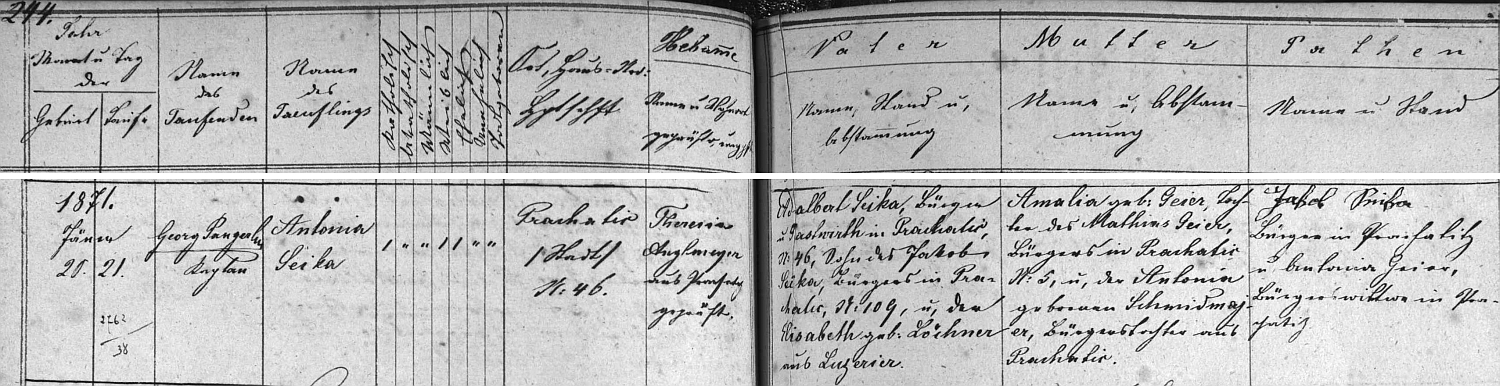 244.
Jahr
Monat u Tag
der
Geburt
Taufe
Name
des
Taufenden
Name
des
Täuflings
Katholisch
Männlich
Weiblich
Ehelich
Unehelich
Ort, Haus-Nro:
Hebamme
Name u
geprüft,
Vater
Name, Stand u,
Abstammung
Mutter
Name u, Abstam-
mung
Pathen
Name u Stand
1871.
Jäner
20. 21.
Georg Pangerl
Kaplan
Antonia
Seika
Prachatic
/Stadt/
N: 46.
Theresia
aus Prachatiz
geprüft.
Adalbert Seika, Bürger
u Gastwirth in Prachatic,
N: 46, Sohn des Jakob
Seika, Bürgers in Pra-
chatic, N: 109, u, der
Elisabeth geb: Löchner
aus Luzerier.
Amalia geb: Geier, Toch-
ter des Mathias Geier,
Bürgers in Prachatic
N: 5, u, der Antonia
geborenen Schmidmaj-
er, Bürgerstochter aus
Prachatic.
Jakob Seika
Bürger in Prachatitz
u Antonia Geier,
Bürgerswittwe in Pra-
chatitz